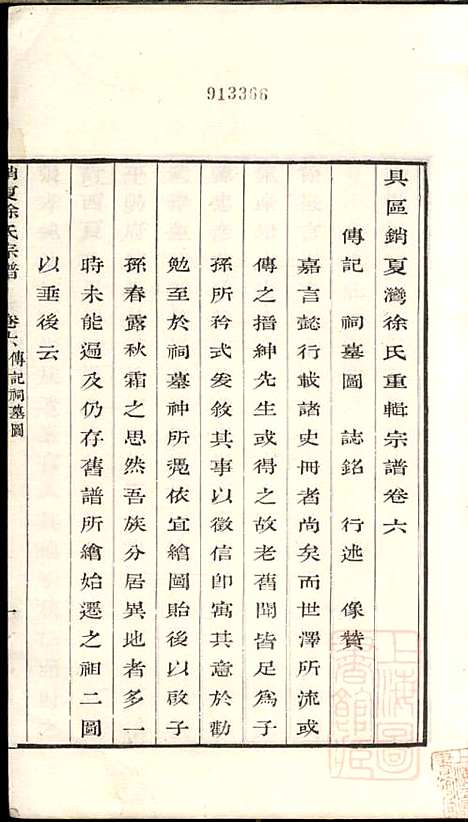 913366
具區銷夏灣徐氏重輯宗譜卷六
傳記　祠墓圖　誌銘　行述　像贊
嘉言懿行載諸史冊者尚矣而世澤所流或
傳之搢紳先生或得之故老舊聞皆足為子
孫所矜式爰敘其事以徵信即寓其意於勸
勉至於祠墓神所憑依宜繪圖貽後以啟子
孫春露秋霜之思然吾族分居異地者多一
時未能遍及仍存舊譜所繪始遷之祖二圖
以垂後云
銷夏徐氏宗譜　卷六傳記祠墓圖　一
上海圖書館藏